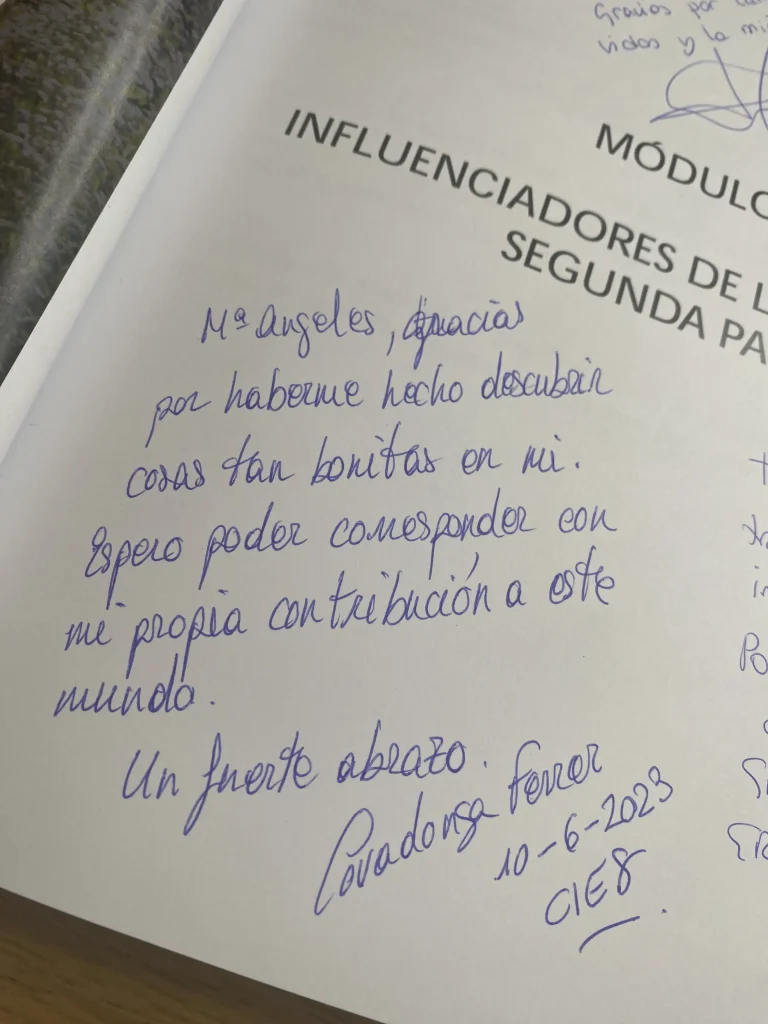 Gracias por
vidas y la
MÓDULO
INFLUENCIADORES DE L
SEGUNDA PA
Mª Angeles, gracias
por haberme hecho descubrir
cosas tan bonitas en mi.
Espero poder corresponder con
mi propia contribución a este
mundo.
Un fuerte abrazo.
Covadonga Ferrer
10-6-2023
CIE8
Po